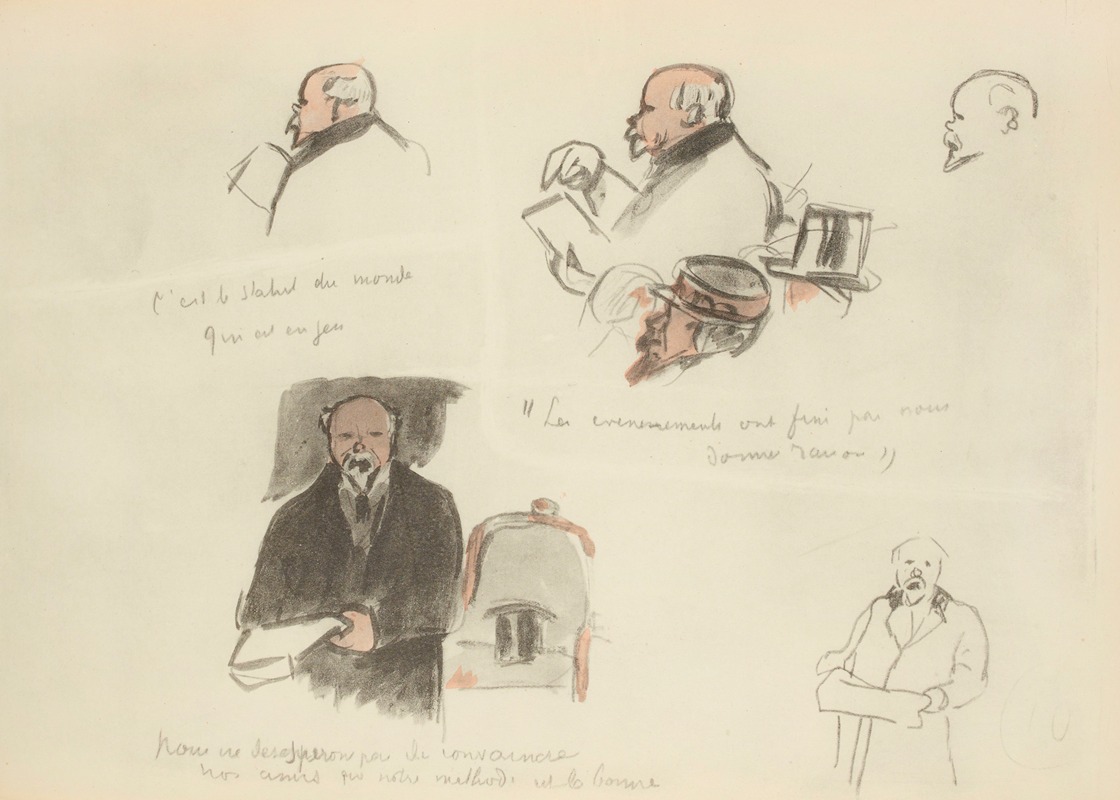 C'est le statut du monde
qui est en jeu
"Les evenements ont fini par nous
donner raison"
Nous ne desesperons pas de convaincre
nos amis que notre methode est la bonne